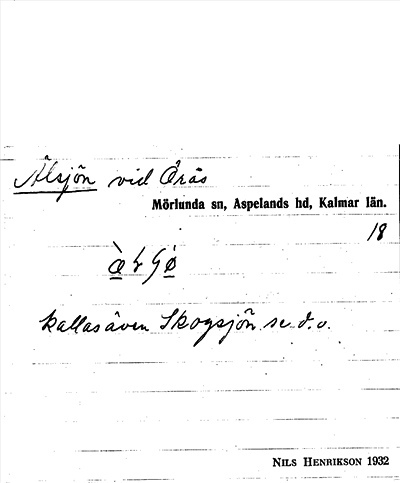 Älsjön vid Örås
Mörlunda sn, Aspelands hd, Kalmar län.
18
kallas även Skogsjön se d.o.
NILS HENRIKSON 1932